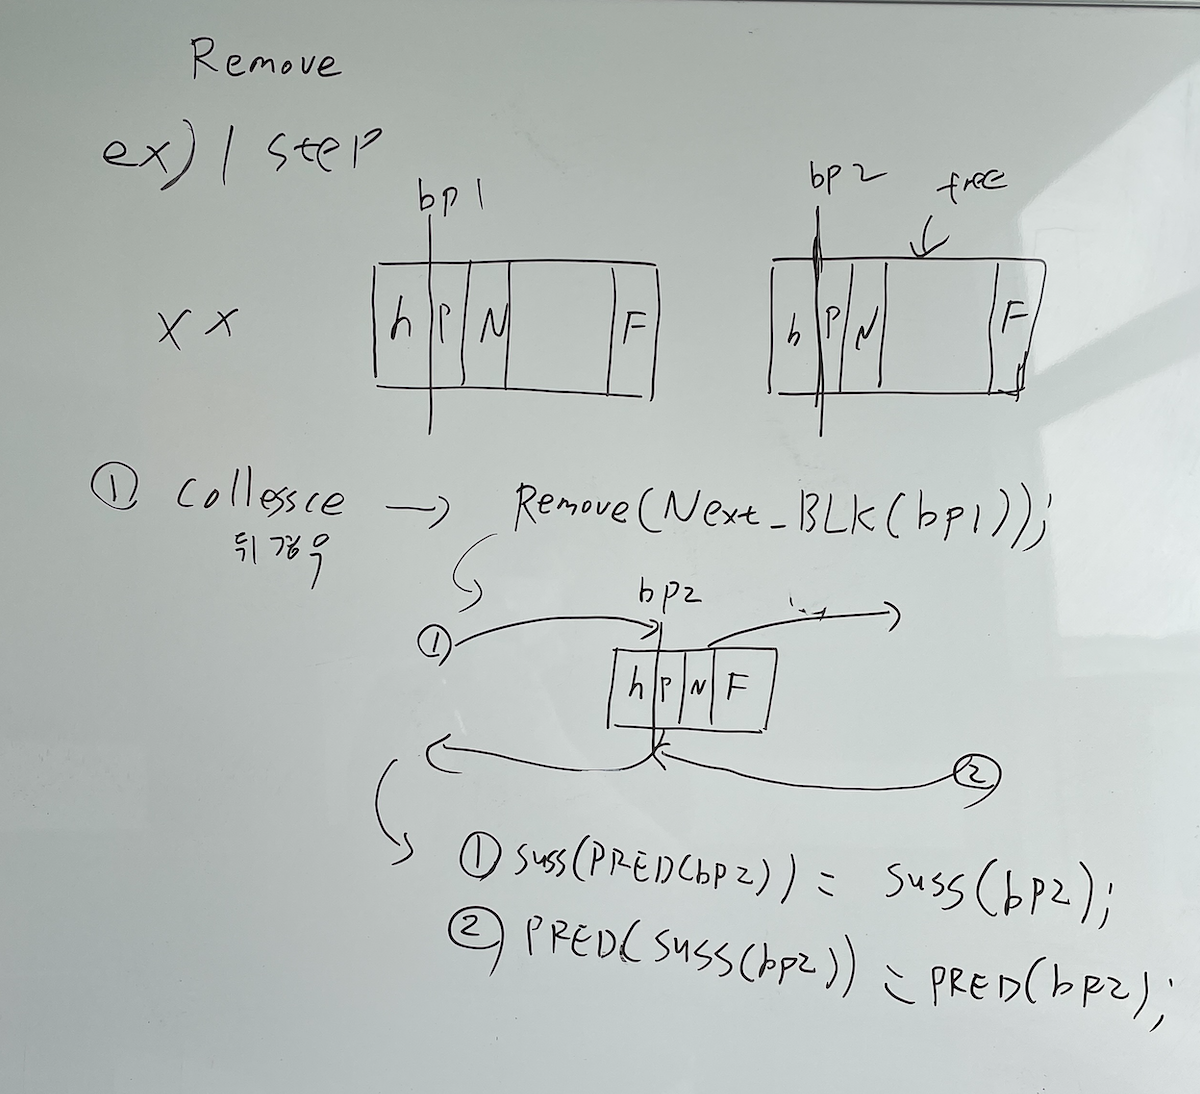 Remove
ex) 1 step
bp1
bp2 free
x x
h P N F
h P N F
① Collessce → Remove(Next_BLK(bp1));
뒤 경우
bp2
①
h P N F
②
① suss(PRED(bp2)) = suss(bp2);
② PRED(suss(bp2)) = PRED(bp2);